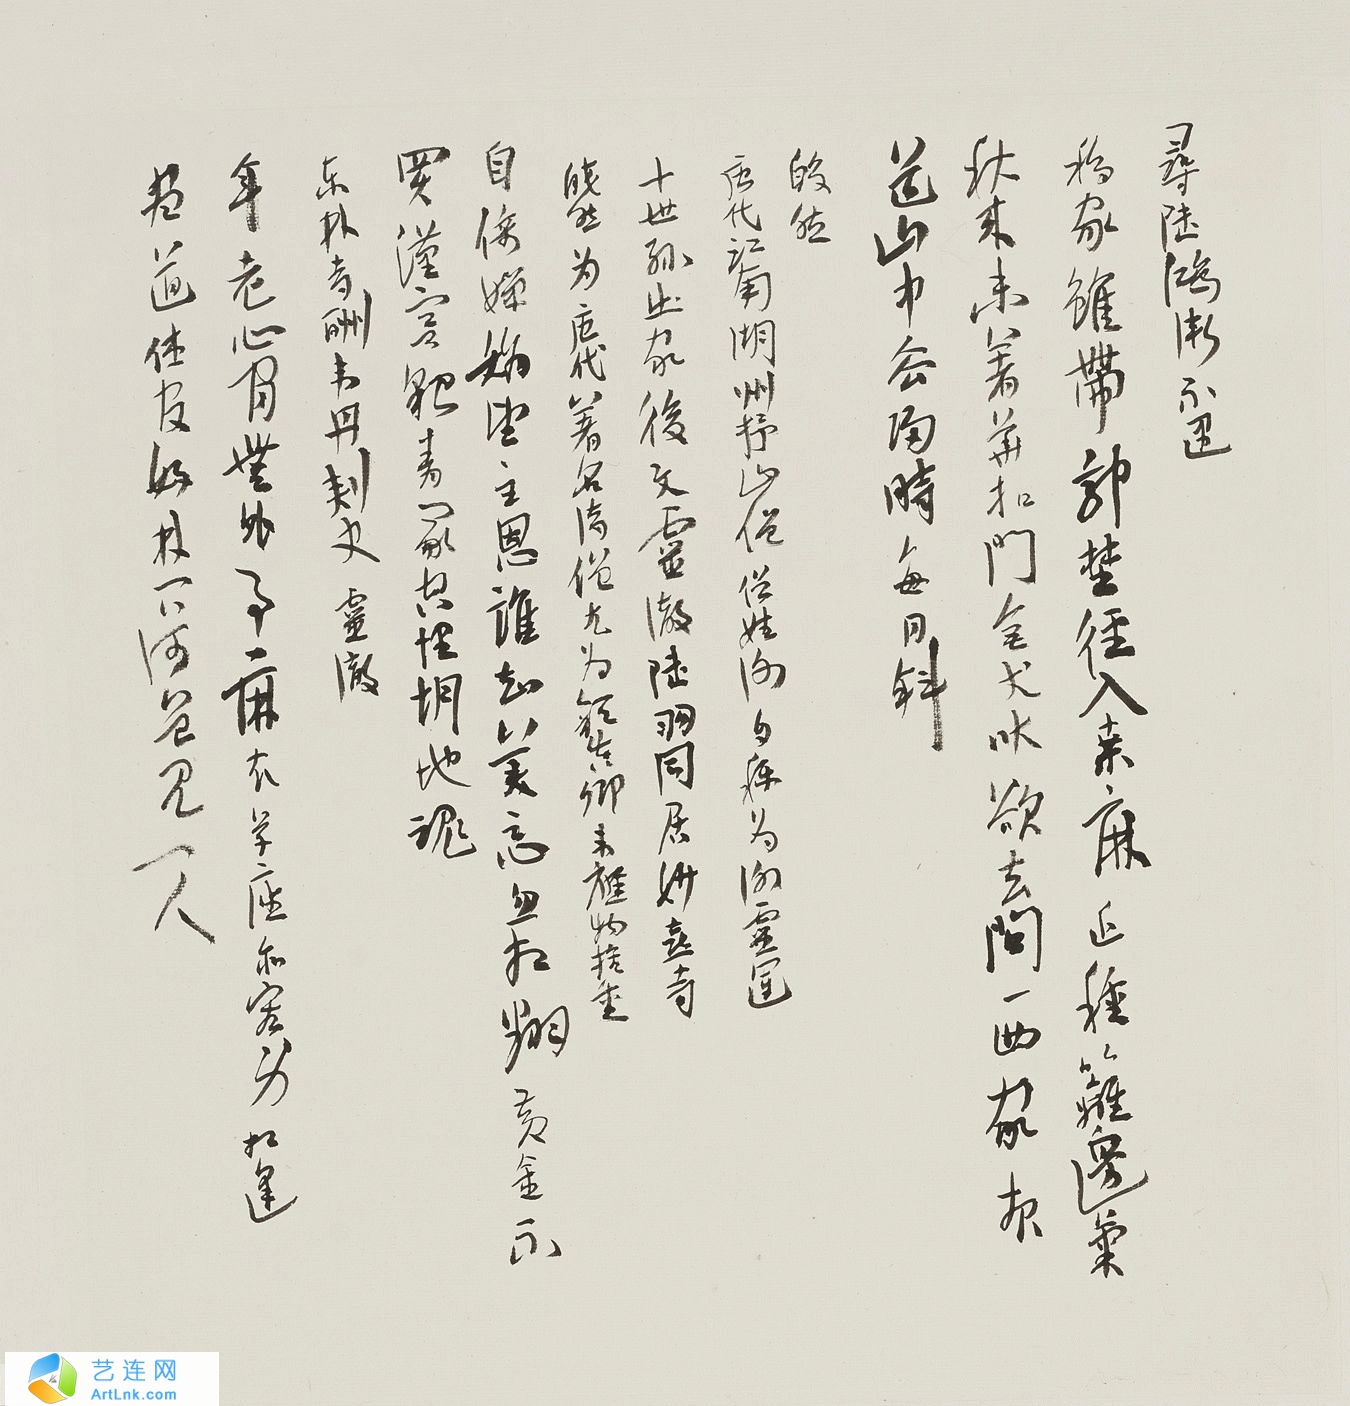 尋陸鴻漸不遇
移家雖帶郭野徑入桑麻近種籬邊菊
秋來未著華扣門無犬吠欲去問西家報
道山中去歸時每日斜
皎然
唐代詩僧湖州杼山僧俗姓謝自稱为謝靈運
十世孫出家後与靈澈陸羽同居妙喜寺
皎然为唐代著名詩僧尤为顏真卿韋應物
自倚嬋娟望主恩誰知美惡忽相翻黃金不
買漢宮貌青冢空埋胡地魂
东林寺酬韦丹刺史 靈澈
年老心閒無外事麻衣草座亦容身相逢
盡道休官好林下何曾見一人
艺连网
ArtLnk.com